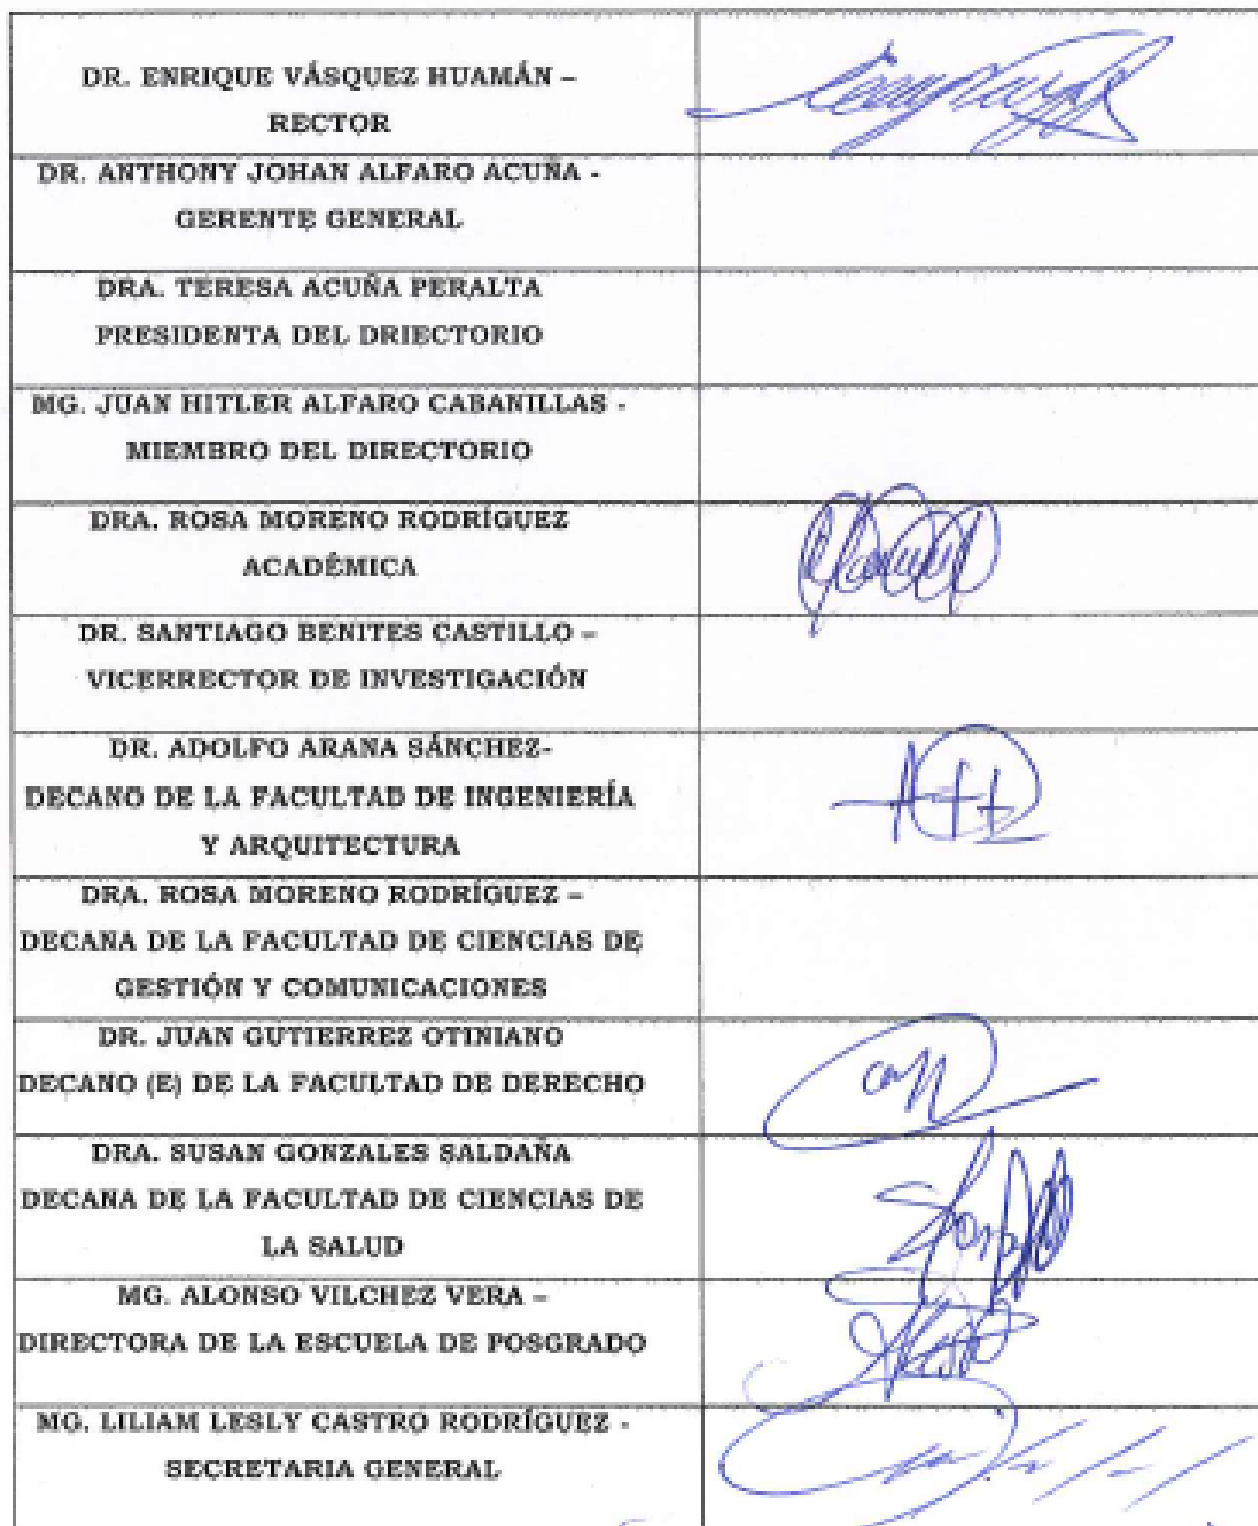 DR. ENRIQUE VÁSQUEZ HUAMÁN –
RECTOR
DR. ANTHONY JOHAN ALFARO ACUÑA -
GERENTE GENERAL
DRA. TERESA ACUÑA PERALTA
PRESIDENTA DEL DRIECTORIO
MG. JUAN HITLER ALFARO CABANILLAS -
MIEMBRO DEL DIRECTORIO
DRA. ROSA MORENO RODRÍGUEZ
ACADÉMICA
DR. SANTIAGO BENITES CASTILLO –
VICERRECTOR DE INVESTIGACIÓN
DR. ADOLFO ARANA SÁNCHEZ-
DECANO DE LA FACULTAD DE INGENIERÍA
Y ARQUITECTURA
DRA. ROSA MORENO RODRÍGUEZ –
DECANA DE LA FACULTAD DE CIENCIAS DE
GESTIÓN Y COMUNICACIONES
DR. JUAN GUTIERREZ OTINIANO
DECANO (E) DE LA FACULTAD DE DERECHO
DRA. SUSAN GONZALES SALDAÑA
DECANA DE LA FACULTAD DE CIENCIAS DE
LA SALUD
MG. ALONSO VILCHEZ VERA –
DIRECTORA DE LA ESCUELA DE POSGRADO
MG. LILIAM LESLY CASTRO RODRÍGUEZ -
SECRETARIA GENERAL